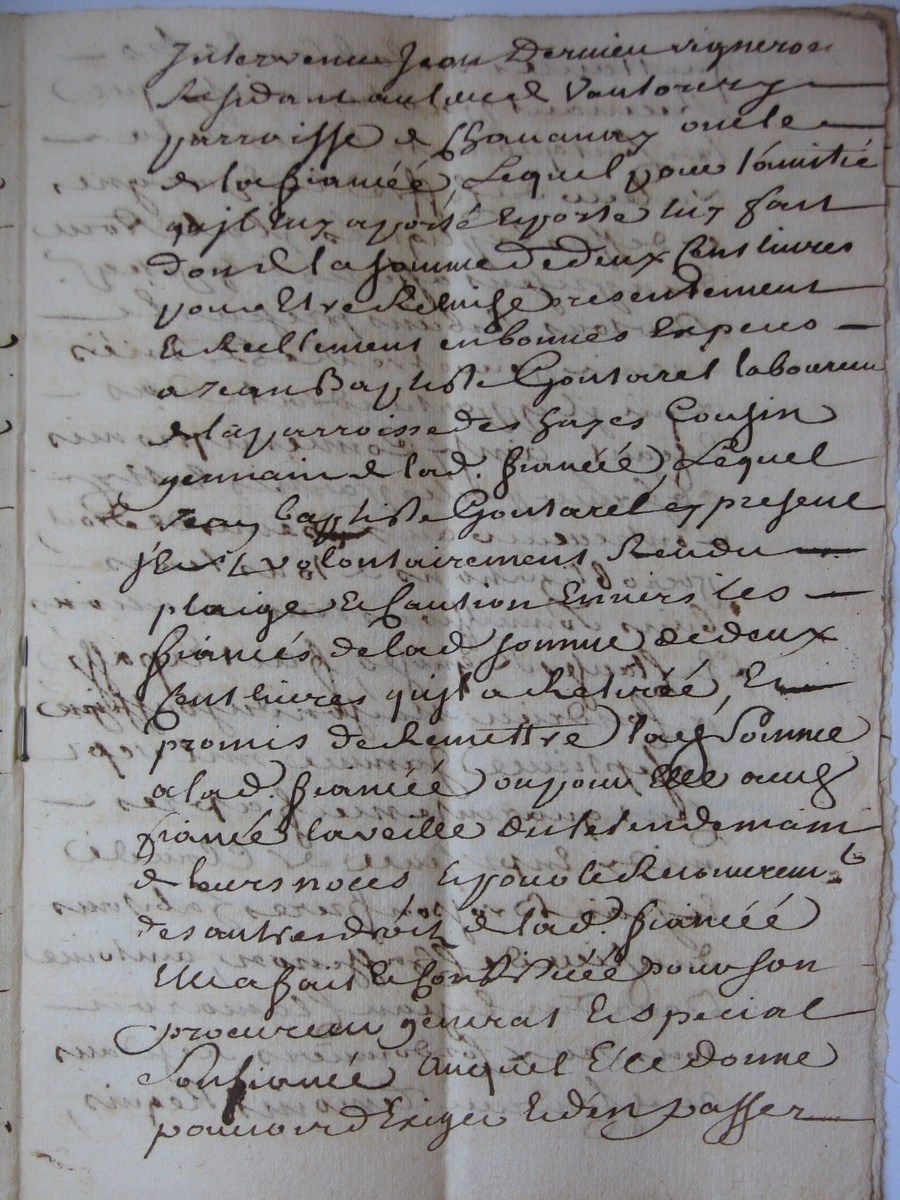 Intervenu Jean Dernieu vigneron
Residant au lieu de
parroisse de Chavanay oncle
de la fiancée, Lequel pour l'amitié
qu'jl luy a porté & porte luy fait
don de la somme de deux Cent livres
pour Etre Remise presentement
& Reellement en bonnes Especes
a Jean Baptiste Goutarel laboureur
de la parroisse des hayes Cousin
germain de lad. fiancée, Lequel
Jean baptiste Goutarel cy present
s'Est volontairement Rendu
plaige & Caution Envers les
fiancés de lad somme de deux
Cent livres qu'jl a Retirée, Et
promis de Remettre lad Somme
a lad. fiancée ou pour Elle aud
fiancé la veille ou le lendemain
de leurs noces, & pour le Recouvrement
des autres droits de lad. fiancée
Elle a fait & Constitué pour son
procureur general & special
Son fiancé auquel Elle donne
pouvoir d'Exiger & d'en passer